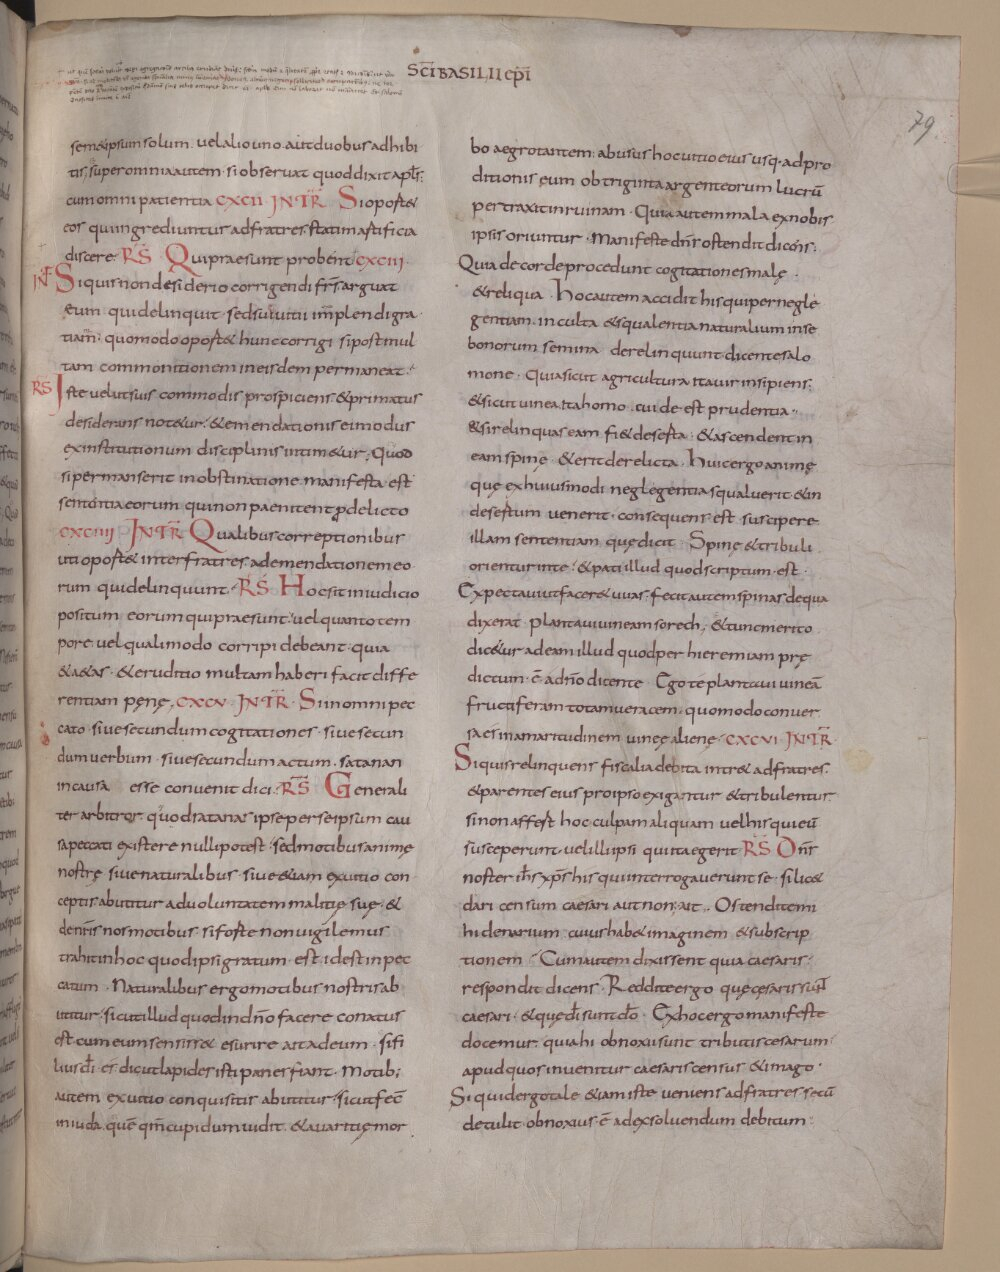 SCI BASILII EPI
79
semetipsum solum. uel alio uno. aut duobus adhibi
tis; super omnia autem. si obseruat quod dixit apls:
cum omni patientia CXCII INTR Si oportet
eos qui ingrediuntur ad fratres. statim artificia
discere. RS Qui praesunt probent CXCIII
INT Si quis non desiderio corrigendi frs arguat
eum qui delinquit. sed sui uitii implendi gra
tiam: quomodo oportet hunc corrigi si post mul
tam commonitionem in eisdem permaneat:
RS Iste uelut suis commodis prospiciens & primatus
desiderans notetur: & emendationis ei modus
ex institutionum disciplinis intimetur; Quod
si permanserit in obstinatione. manifesta est
sententia eorum qui non paenitent p delicto
CXCIIII INTR Qualibus correptionibus
uti oportet inter fratres ad emendationem eo
rum qui delinquunt. RS Hoc sit in iudicio
positum eorum qui praesunt: uel quanto tem
pore. uel quali modo corripi debeant. quia
& aetas. & eruditio multam haberi facit diffe
rentiam penę; CXCV INTR Si in omni pec
cato. siue secundum cogitationes. siue secun
dum uerbum. siue secundum actum. satanan
in causa esse conuenit dici. RS Generali
ter arbitror. quod satanas ipse per se ipsum cau
sa peccati existere nulli potest. sed motibus animę
nostrę siue naturalibus. siue etiam ex uitio con
ceptis abutitur ad uoluntatem malitię suę. &
dentis nos motibus. si forte non uigilemus
trahit in hoc quod ipsi gratum est. id est in pec
catum. Naturalibus ergo motibus nostris ab
utitur. sicut illud quod in dno facere conatus
est. cum eum sensisset esurire ait ad eum. si fi
lius di es dic ut lapides isti panes fiant. Motib;
autem ex uitio conquisitis abutitur. sicut fec
in iuda. que qm cupidum uidit. & auaritię mor
bo aegrotantem: abusus hoc uitio eius usq. ad pro
ditionis eum ob triginta argenteorum lucru
pertraxit in ruinam. Quia autem mala ex nobis
ipsis oriuntur. Manifeste dns ostendit dicens:
Quia de corde procedunt cogitationes malę.
& reliqua. Hoc autem accidit his qui per negle
gentiam. inculta & squalentia naturalium in se
bonorum semina derelinquunt dicente salo
mone. Quia sicut agricultura ita uir insipiens.
& sicut uinea. ita homo. cui de est prudentia..
& si relinquas eam fiet deserta. & ascendent in
eam spinę. & erit derelicta. Huic ergo animę
quę ex huiusmodi neglegentia squaluerit. & in
desertum uenerit. consequens est suscipere
illam sententiam quę dicit. Spinę & tribuli
orientur in te: & pati illud quod scriptum est.
Expectaui ut faceret uuas. fecit autem spinas de qua
dixerat. plantaui uineam sorech; & tunc merito
dicetur ad eam illud quod per hieremiam prę
dictum. e ad no dicente. Ego te plantaui uineā
fructiferam totam ueracem. quomodo conuer
sa es in amaritudinem uinęe alienę. CXCVI INTR
Si quis relinquens fiscalia debita intret ad fratres:
& parentes eius pro ipso exigantur & tribulentur.
si non affert hoc culpam aliquam uel his qui eū
susceperunt. uel illi ipsi qui ita egerit RS Dns
noster ihs xps his qui interrogauerunt se. si licet
dari censum caesari aut non; ait.. Ostendite mi
hi denarium: cuius habet imaginem & subscrip
tionem. Cum autem dixissent quia caesaris:
respondit dicens. Reddite ergo quę cęsaris sunt
caesari. & quę di sunt do. Ex hoc ergo manifeste
docemur: quia hi obnoxii sunt tributis cesarum
apud quos inuenitur caesaris census & imago.
Si quid ergo tale & iam iste ueniens ad fratres secū
detulit. obnoxius. e ad exsoluendum debitum.